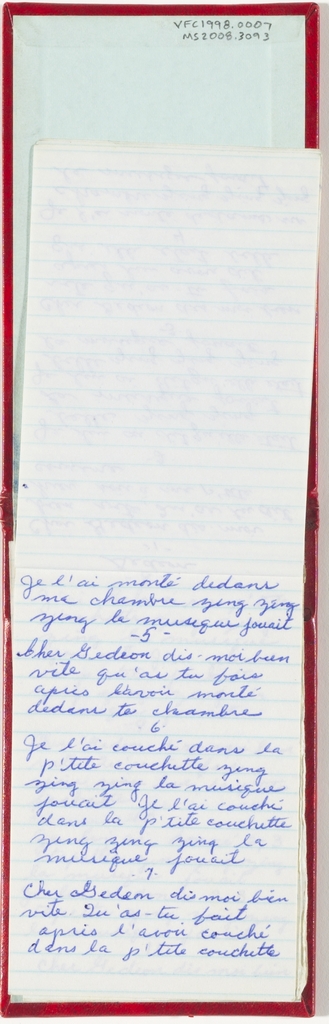 VFC1998.0007
MS2008.3093
Je l'ai monté dedans
ma chambre zing zing
zing la musique jouait
-5-
Cher Gedeon dis-moi bien
vite qu'as tu fais
après l'avoir monté
dedans ta chambre
.6.
Je l'ai couché dans la
p'tite couchette zing
zing zing la musique
jouait Je l'ai couché
dans la p'tite couchette
zing zing zing la
musique jouait
.7.
Cher Gedeon dis moi bien
vite Qu'as-tu fait
après l'avoir couché
dans la p'tite couchette